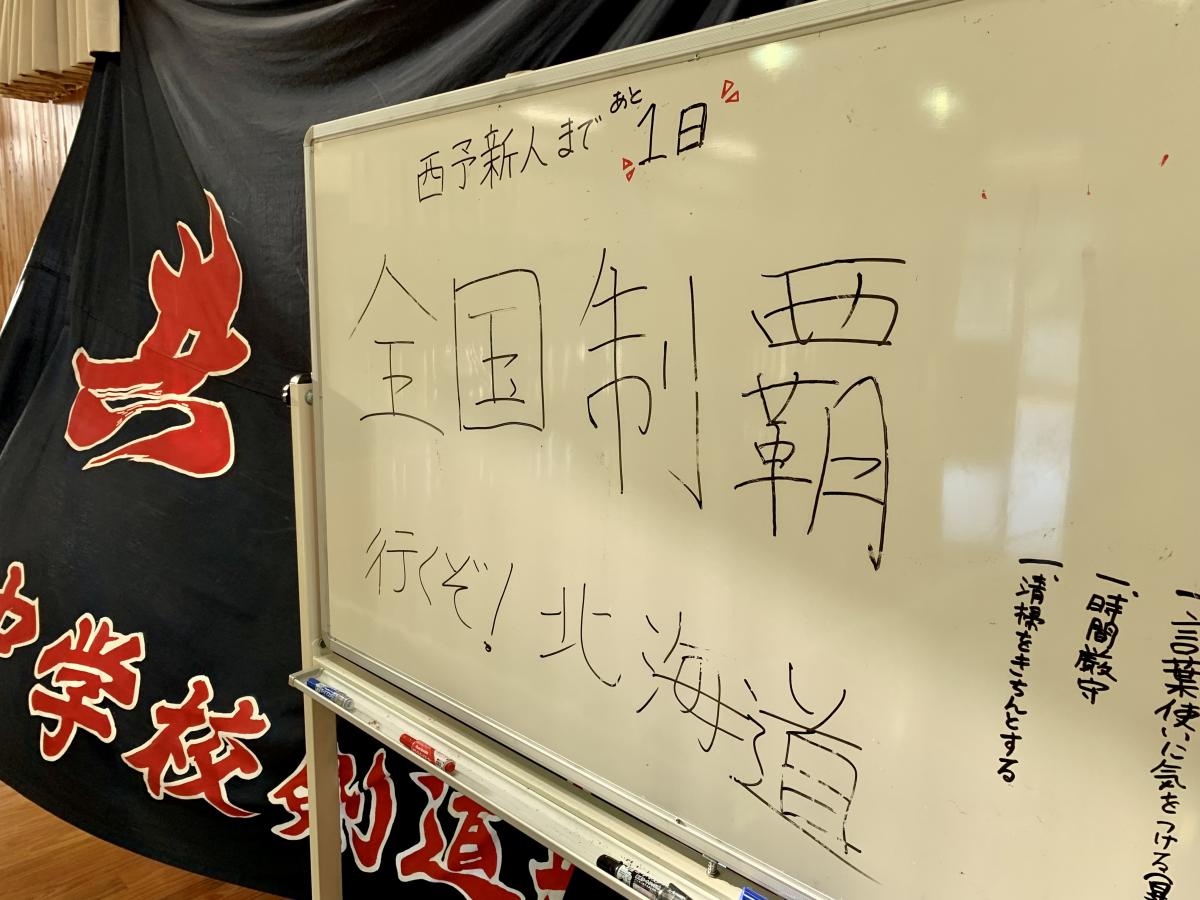 西予新人まであと1日
全国制覇
行くぞ！北海道
一、言葉使いに気をつける
一、時間厳守
一、清掃をきちんとする
共
中学校剣道